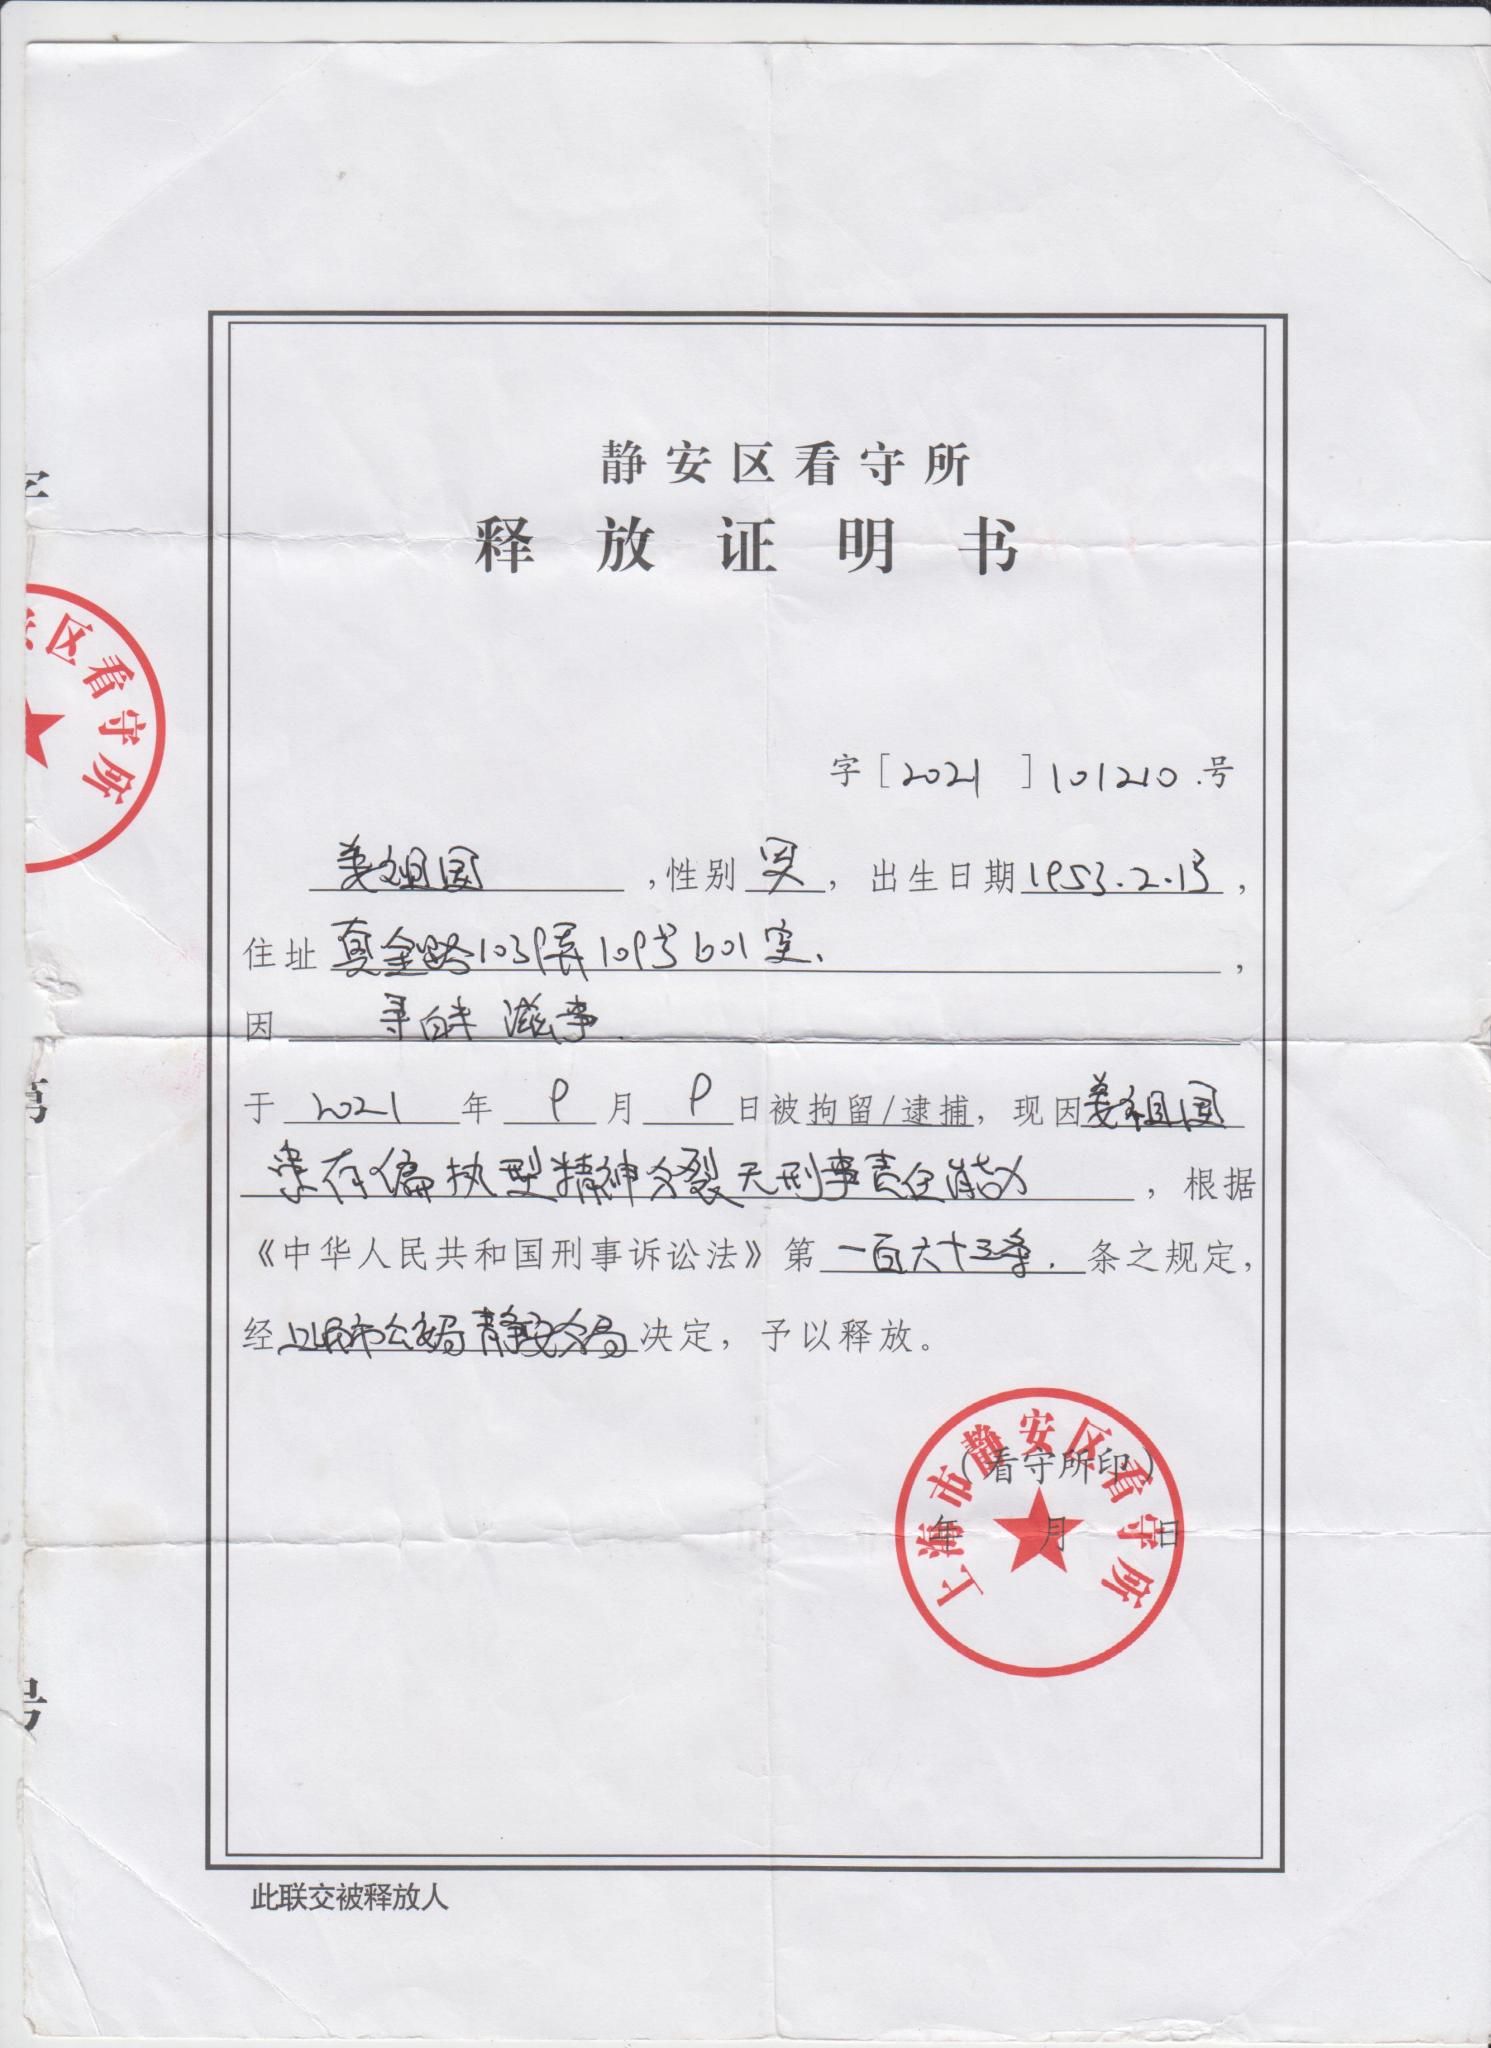 静安区看守所
释放证明书
字[2021]101210.号
姜祖国,性别男,出生日期1953.2.13,
住址真金路1039弄109号601室.,
因寻衅滋事.
于2021年9月9日被拘留/逮捕,现因姜祖国
患有偏执型精神分裂无刑事责任能力,根据
《中华人民共和国刑事诉讼法》第一百六十三条.条之规定,
经上海市公安局静安分局决定,予以释放。
(看守所印)
年 月 日
上海市静安区看守所
区看守所
号
此联交被释放人